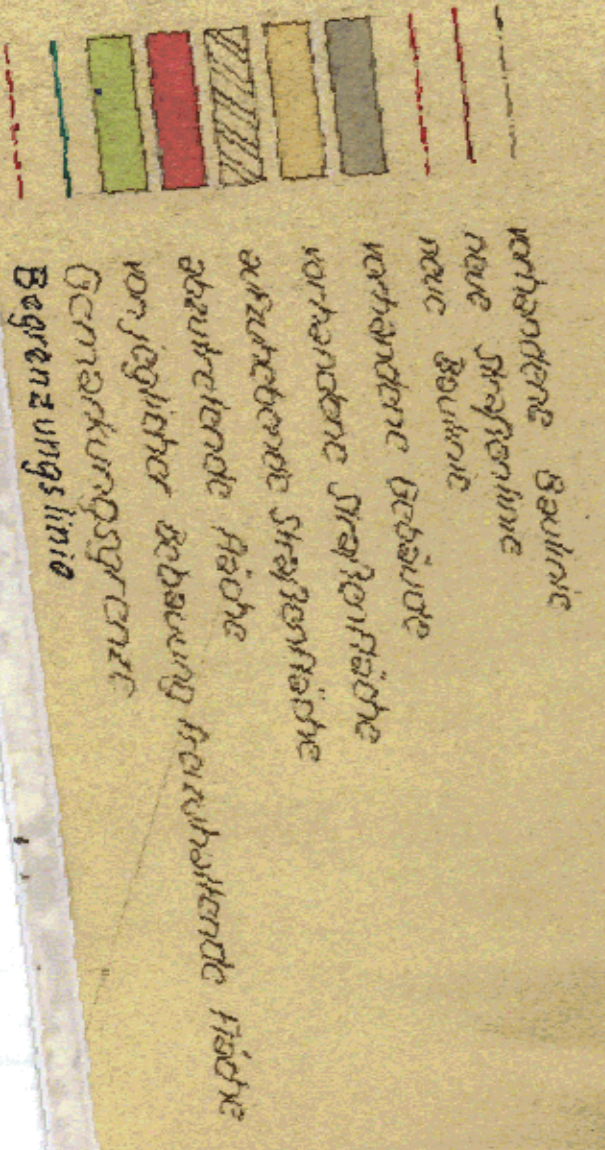 vorhandene Baulinie
neue Straßenlinie
neue Baulinie
vorhandene Gebäude
vorhandene Straßenfläche
aufzuhebende Straßenfläche
abzutretende Fläche
von jeglicher Bebauung freizuhaltende Fläche
Gemarkungsgrenze
Begrenzungslinie